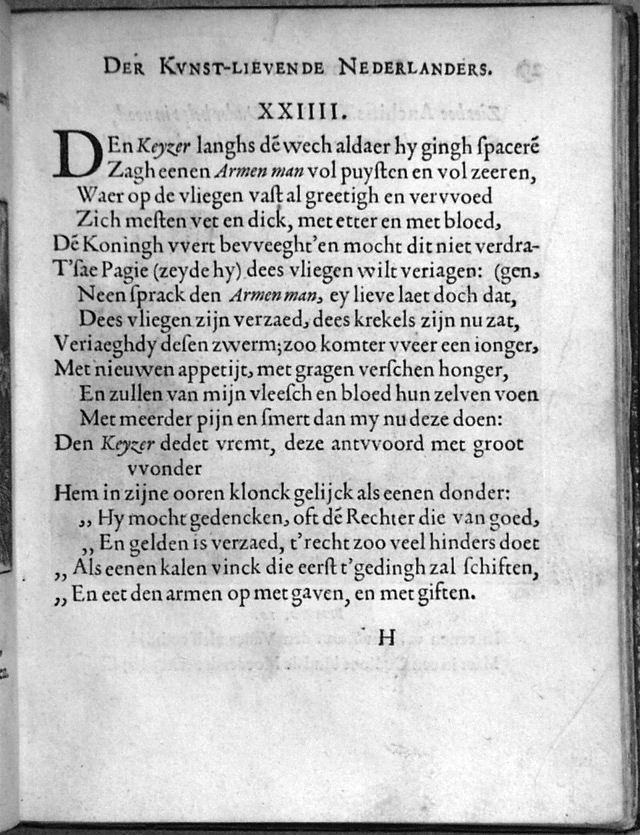 DER KVNST-LIEVENDE NEDERLANDERS.
XXIIII.
DEn Keyzer langhs dẽ wech aldaer hy gingh ſpacerẽ
Zagh eenen Armen man vol puyſten en vol zeeren,
Waer op de vliegen vaſt al greetigh en vervvoed
Zich meſten vet en dick, met etter en met bloed,
Dẽ Koningh vvert bevveeght'en mocht dit niet verdra-
T'ſae Pagie (zeyde hy) dees vliegen wilt veriagen: (gen,
Neen ſprack den Armen man, ey lieve laet doch dat,
Dees vliegen zijn verzaed, dees krekels zijn nu zat,
Veriaeghdy deſen zwerm; zoo komter vveer een ionger,
Met nieuwen appetijt, met gragen verſchen honger,
En zullen van mijn vleeſch en bloed hun zelven voen
Met meerder pijn en ſmert dan my nu deze doen:
Den Keyzer dedet vremt, deze antvvoord met groot
vvonder
Hem in zijne ooren klonck gelijck als eenen donder:
„ Hy mocht gedencken, oft dẽ Rechter die van goed,
„ En gelden is verzaed, t'recht zoo veel hinders doet
„ Als eenen kalen vinck die eerſt t'gedingh zal ſchiften,
„ En eet den armen op met gaven, en met giften.
H